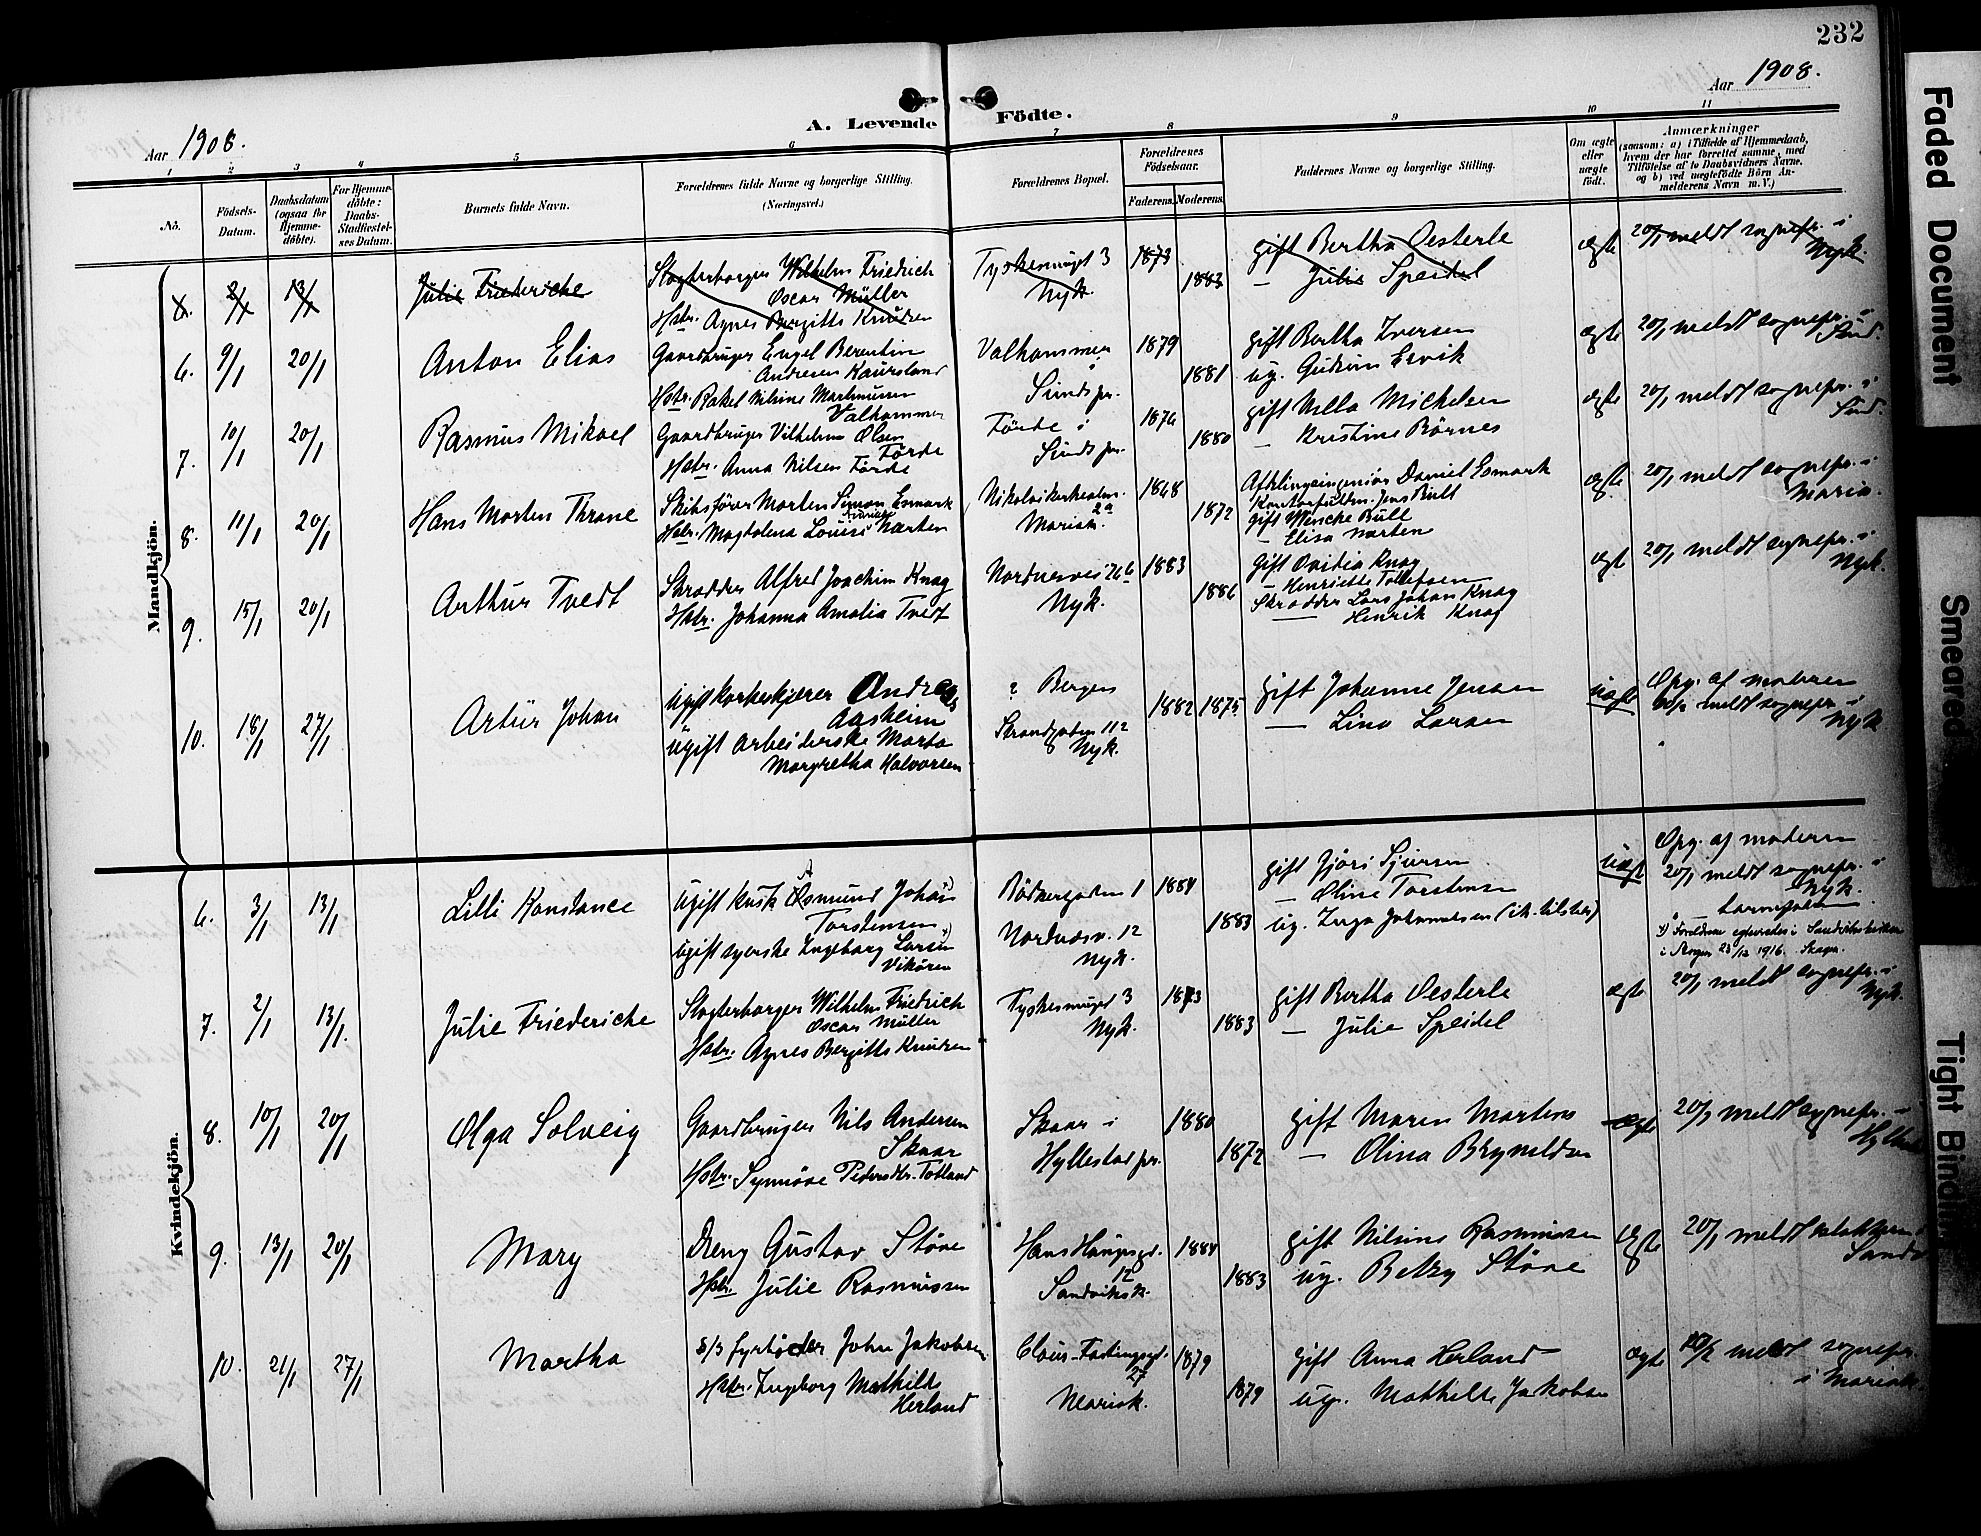 232
Aar 1908.
Aar 1908.
A. Levende Födte.
1 2 3 4 5 6 7 8 9 10 11
No.
Födsels-
Datum.
Daabsdatum
(ogsaa for
Hjemme-
döbte).
For Hjemme-
döbte:
Daabs-
Stadfæstel-
ses Datum.
Barnets fulde Navn.
Forældrenes fulde Navne og borgerlige Stilling.
(Næringsvei.)
Forældrenes Bopæl.
Forældrenes
Födselsaar.
Faderens. Moderens.
Faddernes Navne og borgerlige Stilling.
Om ægte
eller
uægte
födt.
Anmærkninger
(saasom: a) i Tilfælde af Hjemmedaab,
hvem der har forrettet samme, med
Tilföielse af to Daabsvidners Navne,
og b) ved uægtefödte Börn An-
melderens Navn m. V.)
Mandkjön.
2/1 13/1
Julie Friederiche
Slagterborger Wilhelm Friedrich
Oscar Müller
Hstr. Agnes Bergitte Knudsen
Tyskesmuget 3
Nyk.
1873
1883
gift Bertha Oesterle
— Julie Speidel
ægte
20/1 meldt sognepr. i
Nyk.
6. 9/1 20/1
Anton Elias
Gaardbruger Engel Berentin
Andresen Kaursland
Hstr. Rakel Nilsine Martinussen
Valhammer
Valhammer
i
Sunds pr.
1879
1881
gift Bertha Iversen
ug. Gudrun Ervik
ægte
20/1 meldt sognepr. i
Sund.
7. 10/1 20/1
Rasmus Mikael
Gaardbruger Vilhelm Olsen
Förde
Hstr. Anna Nilsen Förde
Förde i
Sunds pr.
1876
1880
gift Nella Michelsen
— Kristine Börnes
ægte
20/1 meldt sognepr. i
Sund.
8. 11/1 20/1
Hans Morten Thrane
Skibsförer Morten Simon Esmark
Hstr. Magdalena Louise Narten
2a
Mariak.
1868
1872
Afdlingsingeniör Daniel Esmark
Jens Bull
gift Wencke Bull
— Elisa Narten
ægte
20/1 meldt sognepr. i
Maria.
9. 15/1 20/1
Arthur Tvedt
Skrædder Alfred Joachim Knag
Hstr. Johanna Amalia Tvedt
Nordnesvei 26 b
Nyk.
1883
1886
gift Ovidia Knag
— Henriette Tollefsen
Skrædder Lars Johan Knag
— Henrik Knag
ægte
20/1 meldt sognepr. i
Nyk.
10. 18/1 27/1
Artur Johan
Ugift Andreas
Aasheim
Ugift Arbeiderske Marta
Margretha Halvorsen
? Bergen
Strandgaten 112
Nyk.
1882 1875
gift Johanne Jensen
— Lina Larsen
uægte
Opg. af moderen
meldt sognepr. i
Nyk
Kvindekjön.
6. 3/1 13/1
Lilli Konstance
Ugift Kusk Asmund Johan
Torstensen
Ugift syerske Ingeborg Larsen
Vikören
Bödkergaden 1
Nordnæsv. 12
Nyk.
1884
1883
gift Gjöri Sjursen
— Oline Torstensen
ug. Inga Johannesen (ik. tilsted)
uægte
Opg. af moderen
20/1 meldt sognepr. i
Nyk.
Forældrene egteviedes i Sandvikskirken
i Bergen 23/12 1916.
7. 2/1 13/1.
Julie Friederiche
Slagterborger Wilhelm Friedrich
Oscar Müller
Hstr. Agnes Bergitte Knudsen
Tyskesmuget 3
Nyk.
1873
1883
gift Bertha Oesterle
— Julie Speidel
ægte
20/1 meldt sognepr. i
Nyk.
8. 10/1 20/1
Olga Solveig
Gaardbruger Nils Andersen
Skaar
Hstr. Synnöve Pedersdtr. Totland
Skaar i
Hyllestad pr.
1880
1872
gift Maren Martens
— Olina Brynildsen
ægte
20/1 meldt sognepr. i
9. 13/1 20/1
Mary
Dreng Gustav Störe
Hstr. Julie Rasmussen
Hans Haugesgd.
12
Sandviksk.
1884
1883
gift Nilsine Rasmussen
ug. Betzy Störe
ægte
20/1 meldt
10. 21/1 27/1
Martha
s/s fyrböder John Jakobsen
Hstr. Ingeborg Mathilde
Herland
Claus Fastingsgd.
27
Mariak.
1879
1879
gift Anna Herland
ug. Mathilde Jakobsen
ægte
meldt sognepr.
i Mariak.
Faded Document
Smeared
Tight Binding